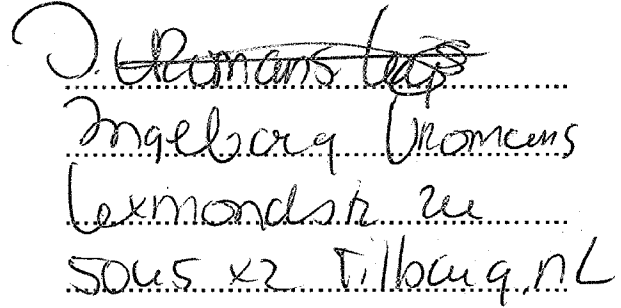 J. Vromans
Ingeborg Vromans
Lexmondstr 24
5045 XZ Tilburg, NL